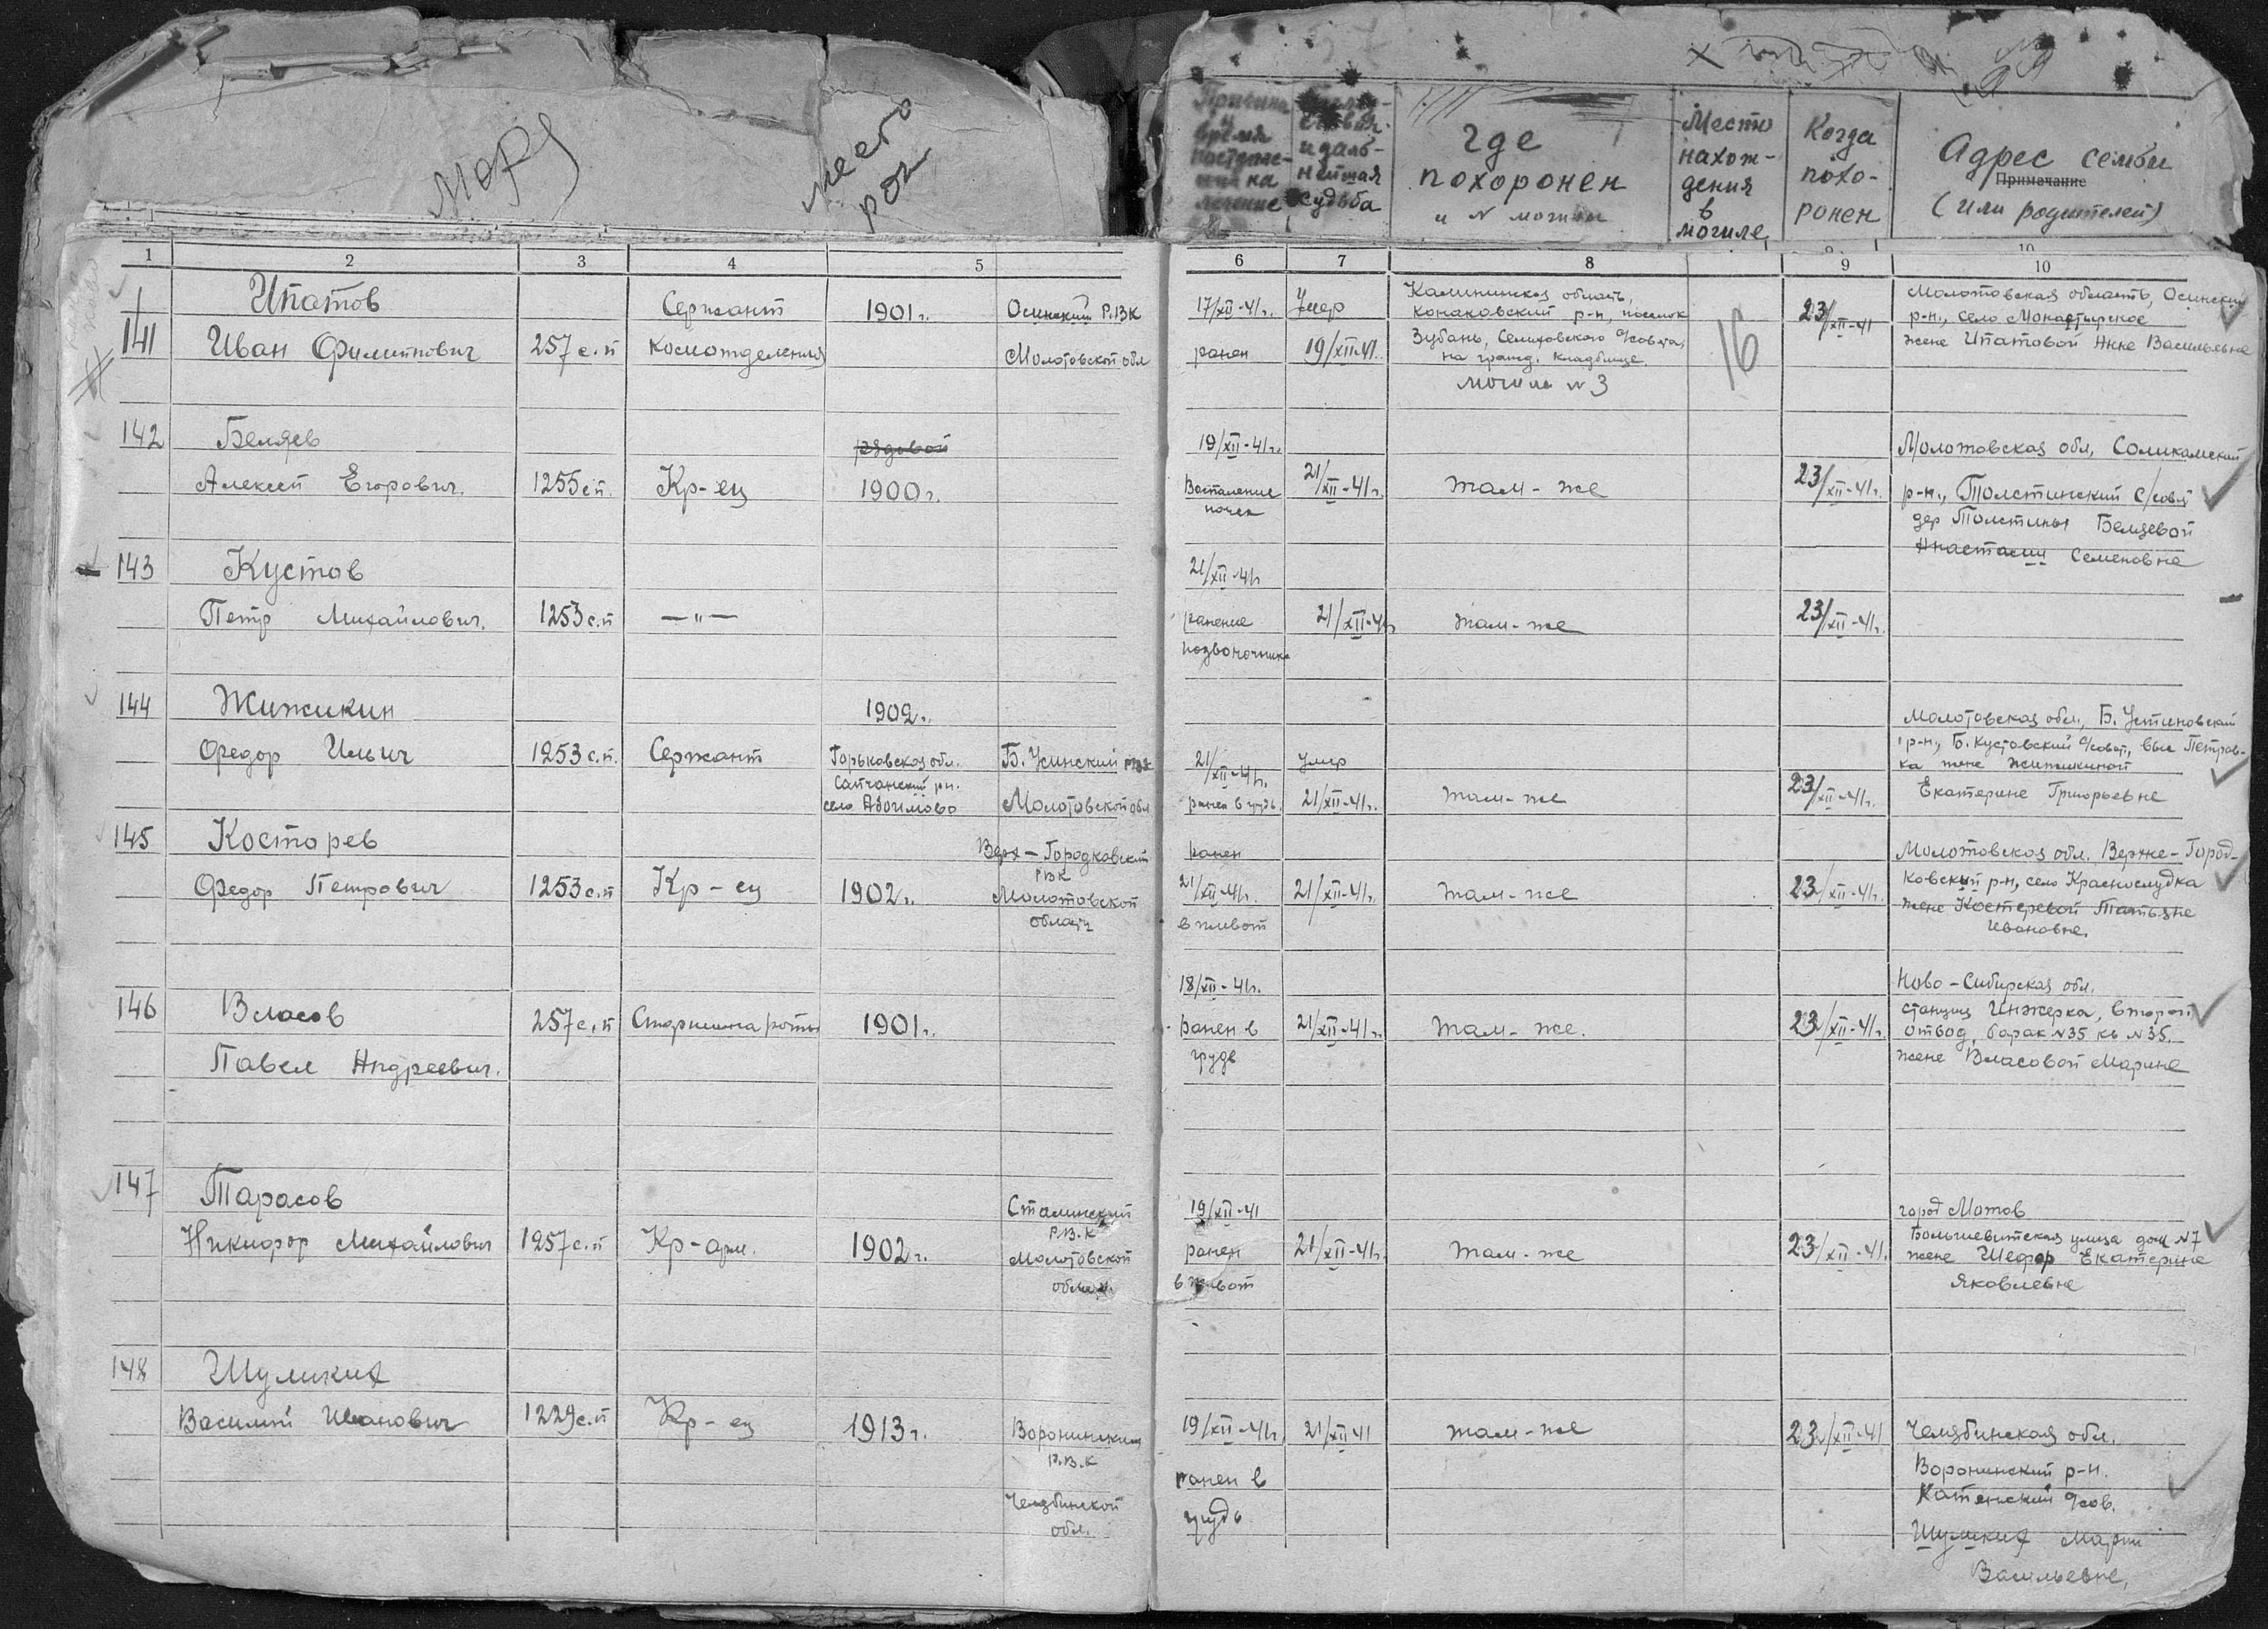 место
рож
Причина
и
время
поступле-
ния на
лечение
и даль-
нейшая
судьба
Где
похоронен
и N могилы
Место
нахож-
дения
в
могиле
Когда
похо-
ронен
Адрес семьи
Примечание
(или родителей)
1 2 3 4 5 6 7 8 9 10
141
Ипатов
Иван Филиппович
257 с.п
Сержант
Комотделения
1901 г.
Осинский Р.В.К
Молотовской обл
17/XII-41г.
ранен
Умер
19/XII-41.
Калининская область,
Конаковский р-н, поселок
Зубань, Селиховского с/совета,
на гражд. кладбище.
могила N 3
16
23/XII-41
Молотовская область, Осинский
р-н., село Монастырское
жене Ипатовой Анне Васильевне
142
Беляев
Алексей Егорович.
1255 с.п.
Кр-ец
рядовой
1900 г.
19/XII-41г.
Воспаление
почек
21/XII-41г.
там-же
23/XII-41г.
Молотовская обл, Соликамский
р-н., Толстинский с/совет
дер Толстины Беляевой
Анастасии Семеновне
143
Кустов
Петр Михайлович.
1253 с.п
—"—
21/XII-41г
ранение
позвоночника
21/XII-41г
там-же
23/XII-41г.
144
Жижикин
Федор Ильич
1253 с.п.
Сержант
1902 г.
Горьковская обл.
Салганский рн.
село Абаимово
Б. Усинский РВК
Молотовской обл
21/XII-41г.
ранен в грудь.
Умер
21/XII-41г.
там-же
23/XII-41г.
Молотовская обл., Б. Устиновский
р-н., Б. Кустовский с/совет, выс Петров-
ка жене Жижикиной
Екатерине Григорьевне
145
Костарев
Федор Петрович
1253 с.п
Кр-ец
1902 г.
Верх-Городковский
РВК
Молотовской
област
ранен
21/XII-41г.
в живот
21/XII-41г.
там-же
23/XII-41г.
Молотовская обл. Верхне-Город-
ковский р-н, село Краснослудка
жене Костеревой Татьяне
Ивановне.
146
Власов
Павел Андреевич.
257 с.п
Старшина роты
1901 г.
18/XII-41г.
ранен в
грудь
21/XII-41г.
там-же.
23/XII-41г.
Ново-Сибирская обл.
станция Инжерка, второй
отвод, барак N35 кв N35.
жене Власовой Марине
147
Тарасов
Никифор Михайлович
1257 с.п
Кр-арм.
1902 г.
Сталинский
Р.В.К
Молотовской
област.
19/XII-41
ранен
в живот
21/XII-41г.
там-же
23/XII-41.
город Молотов
Большевитская улица дом N7
жене Шефер Екатерине
Яковлевне
148
Шумких
Василий Иванович
1229 с.п
Кр-ец
1913 г.
Воронинским
Р.В.К
Челябинской
обл.
19/XII-41г
ранен в
грудь
21/XII 41
там-же
23/XII-41
Челябинская обл.
Воронинский р-н.
с/сов.
Шумких Марии
Васильевне,